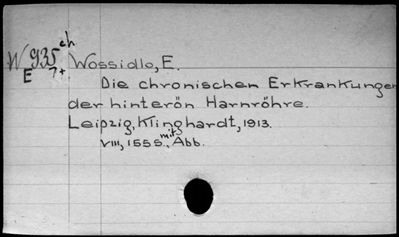 W 935 ch
E 7+
Wossidlo, E.
Die chronischen Erkrankungen
der hinterön Harnröhre.
Leipzig, Klinghardt, 1913.
VIII, 155 S. mit Abb.